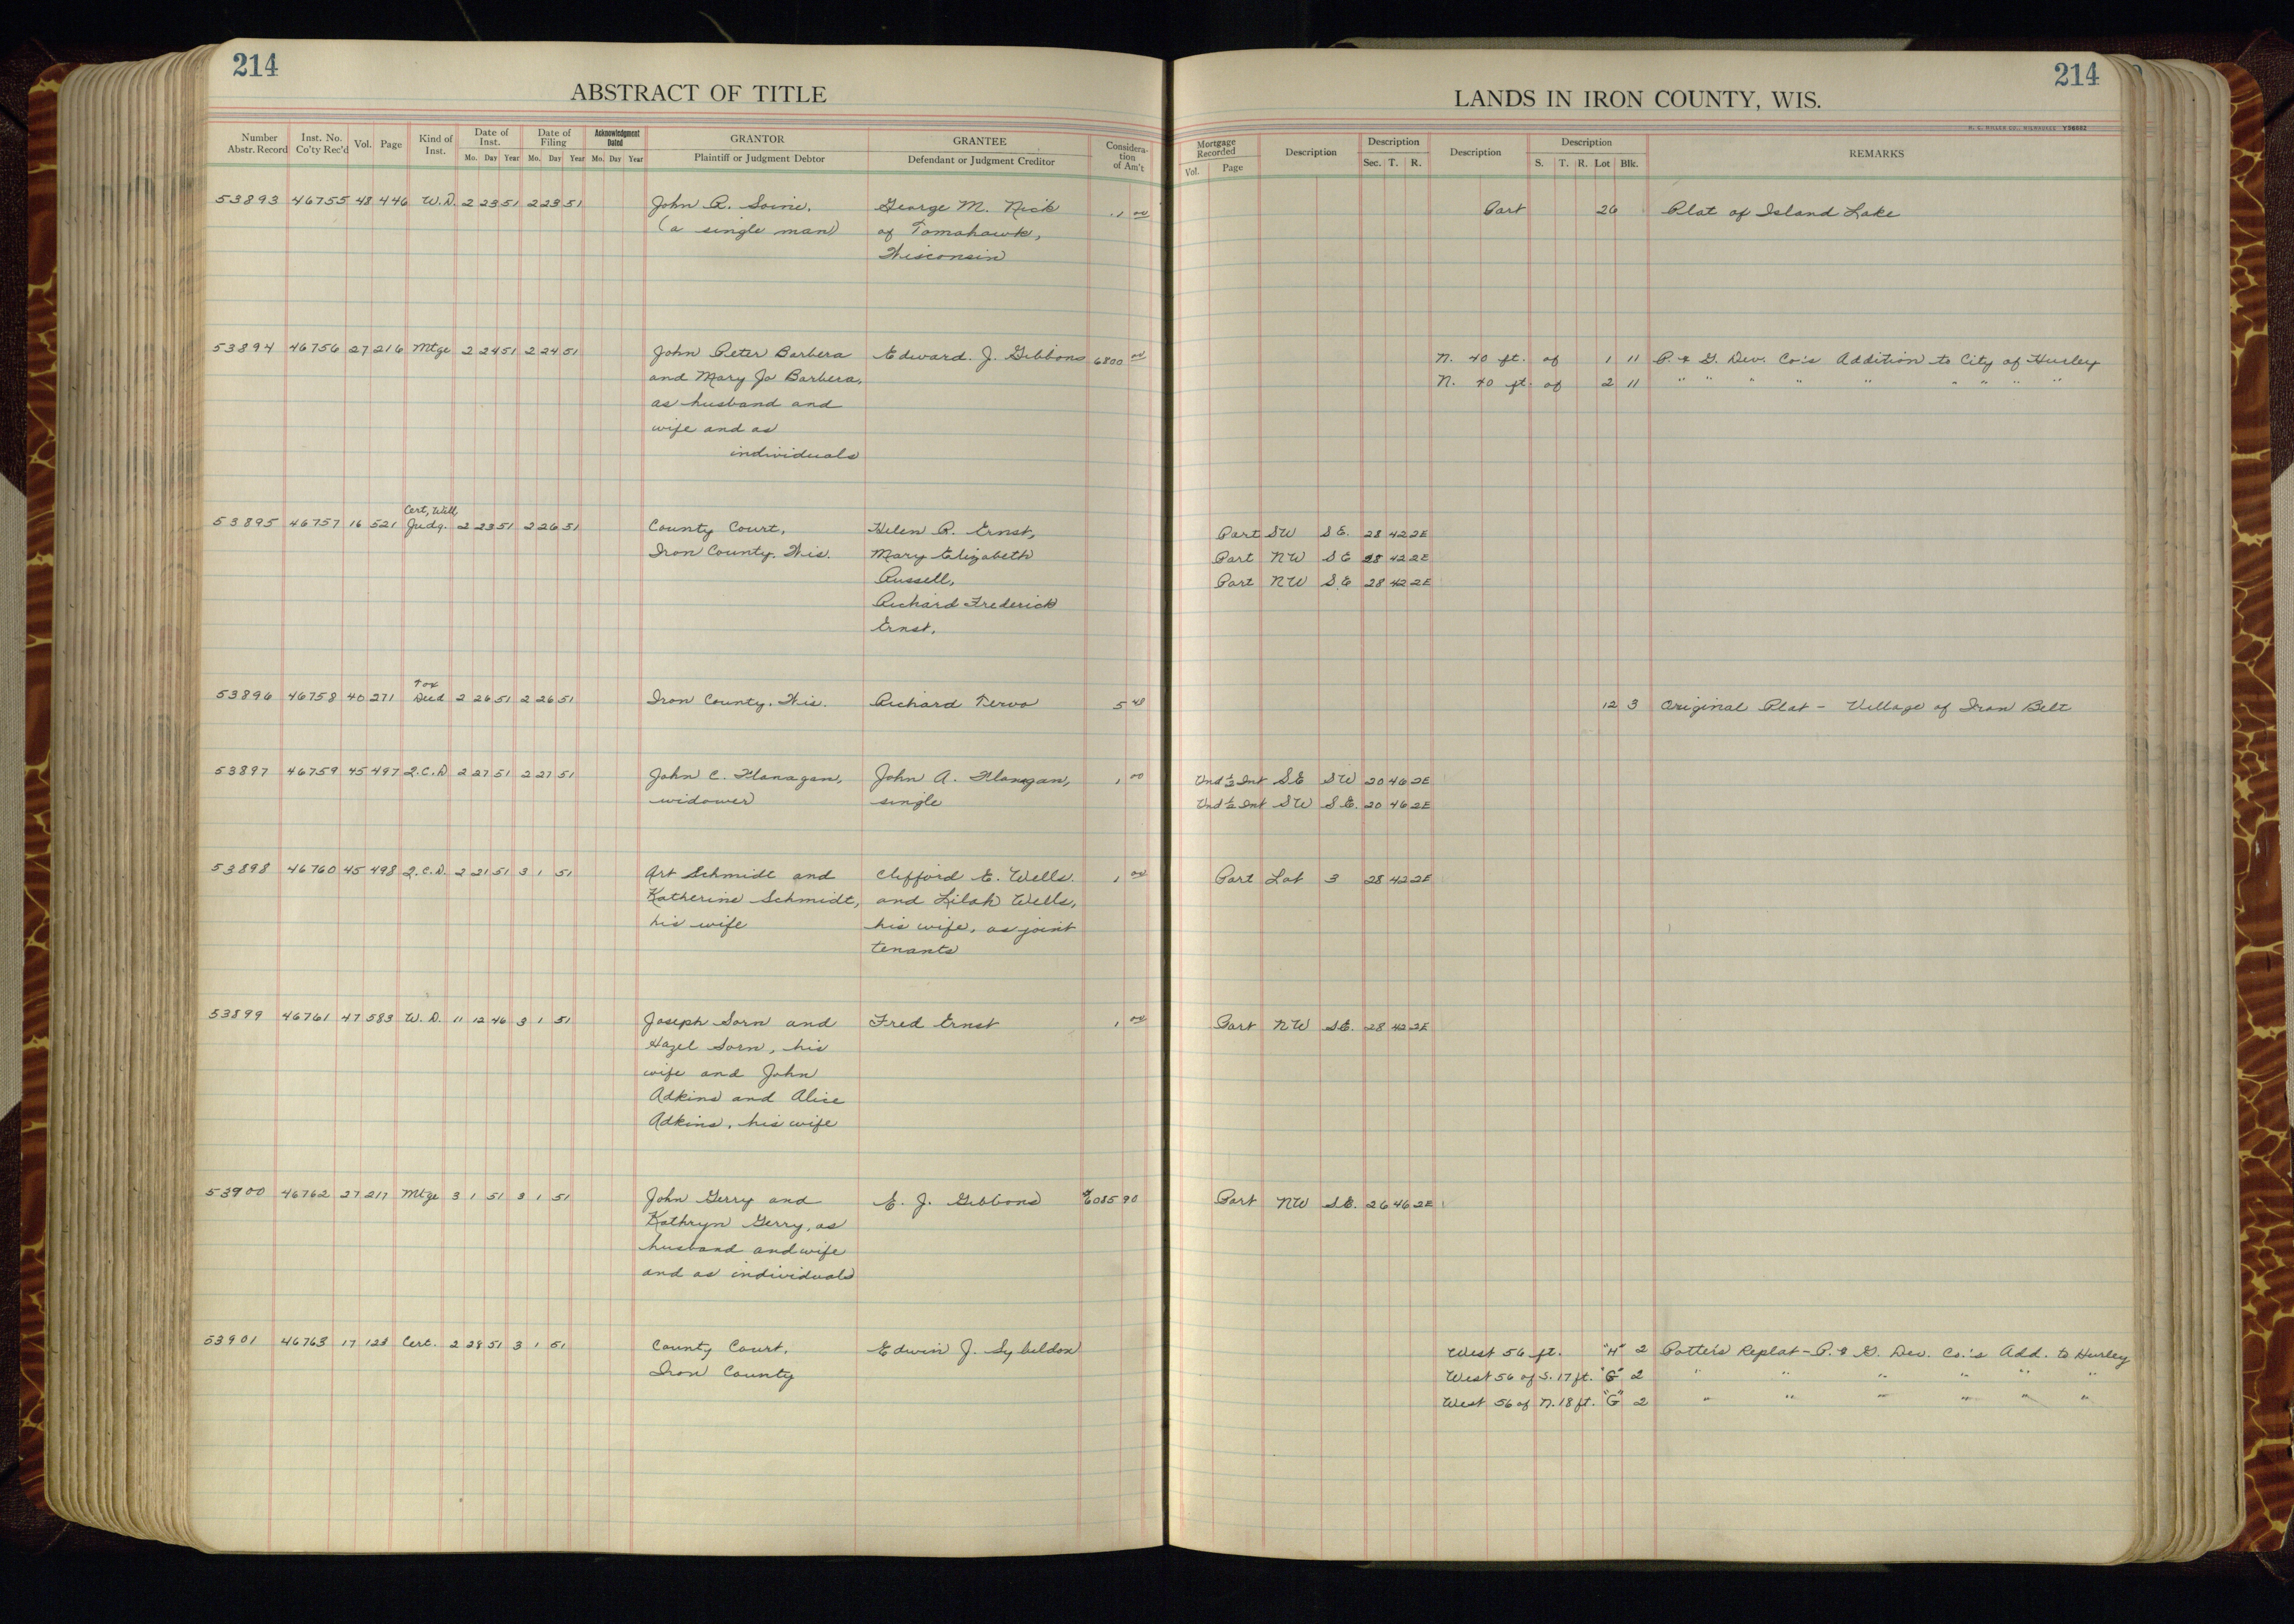 214
ABSTRACT OF TITLE
Number Abstr. Record Inst. No. Co'ty Rec'd Vol. Page Kind of Inst. Date of Inst. Mo. Day Year Date of Filing Mo. Day Year Acknowledgment Dated Mo. Day Year GRANTOR Plaintiff or Judgment Debtor GRANTEE Defendant or Judgment Creditor Consideration of Am't
53893 46755 48 446 W.D. 2 23 51 2 23 51 John R. Soine, George M. Nick 1 00
(a single man) of Tomahawk,
Wisconsin
53894 46756 27 216 Mtge 2 24 51 2 24 51 John Peter Barbera Edward. J. Gibbons 6800 00
and Mary Jo Barbera,
as husband and
wife and as
individuals
Cert, Will
53895 46757 16 521 Judg. 2 23 51 2 26 51 County Court, Helen R. Ernst,
Iron County, Wis. Mary Elizabeth
Russell,
Richard Frederick
Ernst,
Tax
53896 46758 40 271 Deed 2 26 51 2 26 51 Iron County, Wis. Richard Tervo 5 48
53897 46759 45 497 Q.C.D 2 27 51 2 27 51 John C. Flanagan, John A. Flanagan, 1 00
widower single
53898 46760 45 498 Q.C.D. 2 21 51 3 1 51 Art Schmidt and Clifford E. Wells. 1 00
Katherine Schmidt, and Lilah Wells,
his wife his wife, as joint
tenants
53899 46761 47 583 W.D. 11 12 46 3 1 51 Joseph Sorn and Fred Ernst 1 00
Hazel Sorn, his
wife and John
Adkins and Alice
Adkins, his wife
53900 46762 27 217 Mtge 3 1 51 3 1 51 John Gerry and E. J. Gibbons $6085 90
Kathryn Gerry, as
husband and wife
and as individuals
53901 46763 17 123 Cert. 2 28 51 3 1 51 County Court, Edwin J. Sybeldon
Iron County
214
LANDS IN IRON COUNTY, WIS.
H. C. MILLER CO., MILWAUKEE Y56682
Mortgage Recorded Vol. Page Description Description Sec. T. R. Description Description S. T. R. Lot Blk. REMARKS
Part 26 Plat of Island Lake
N. 40 ft. of 1 11 P. & G. Dev. Co's Addition to City of Hurley
N. 40 ft. of 2 11 " " " " " " " " "
Part SW SE. 28 42 2E
Part NW SE 28 42 2E
Part NW SE 28 42 2E
12 3 Original Plat - Village of Iron Belt
Und 1/2 Int SE SW 20 46 2E
Und 1/2 Int SW SE. 20 46 2E
Part Lot 3 28 42 2E
Part NW SE. 28 42 2E
Part NW SE. 26 46 2E
West 56 ft. "H" 2 Potter's Replat - P. & G. Dev. Co.'s Add. to Hurley
West 56 of S. 17 ft. "G" 2 " " " " " "
West 56 of N. 18 ft. "G" 2 " " " " " "